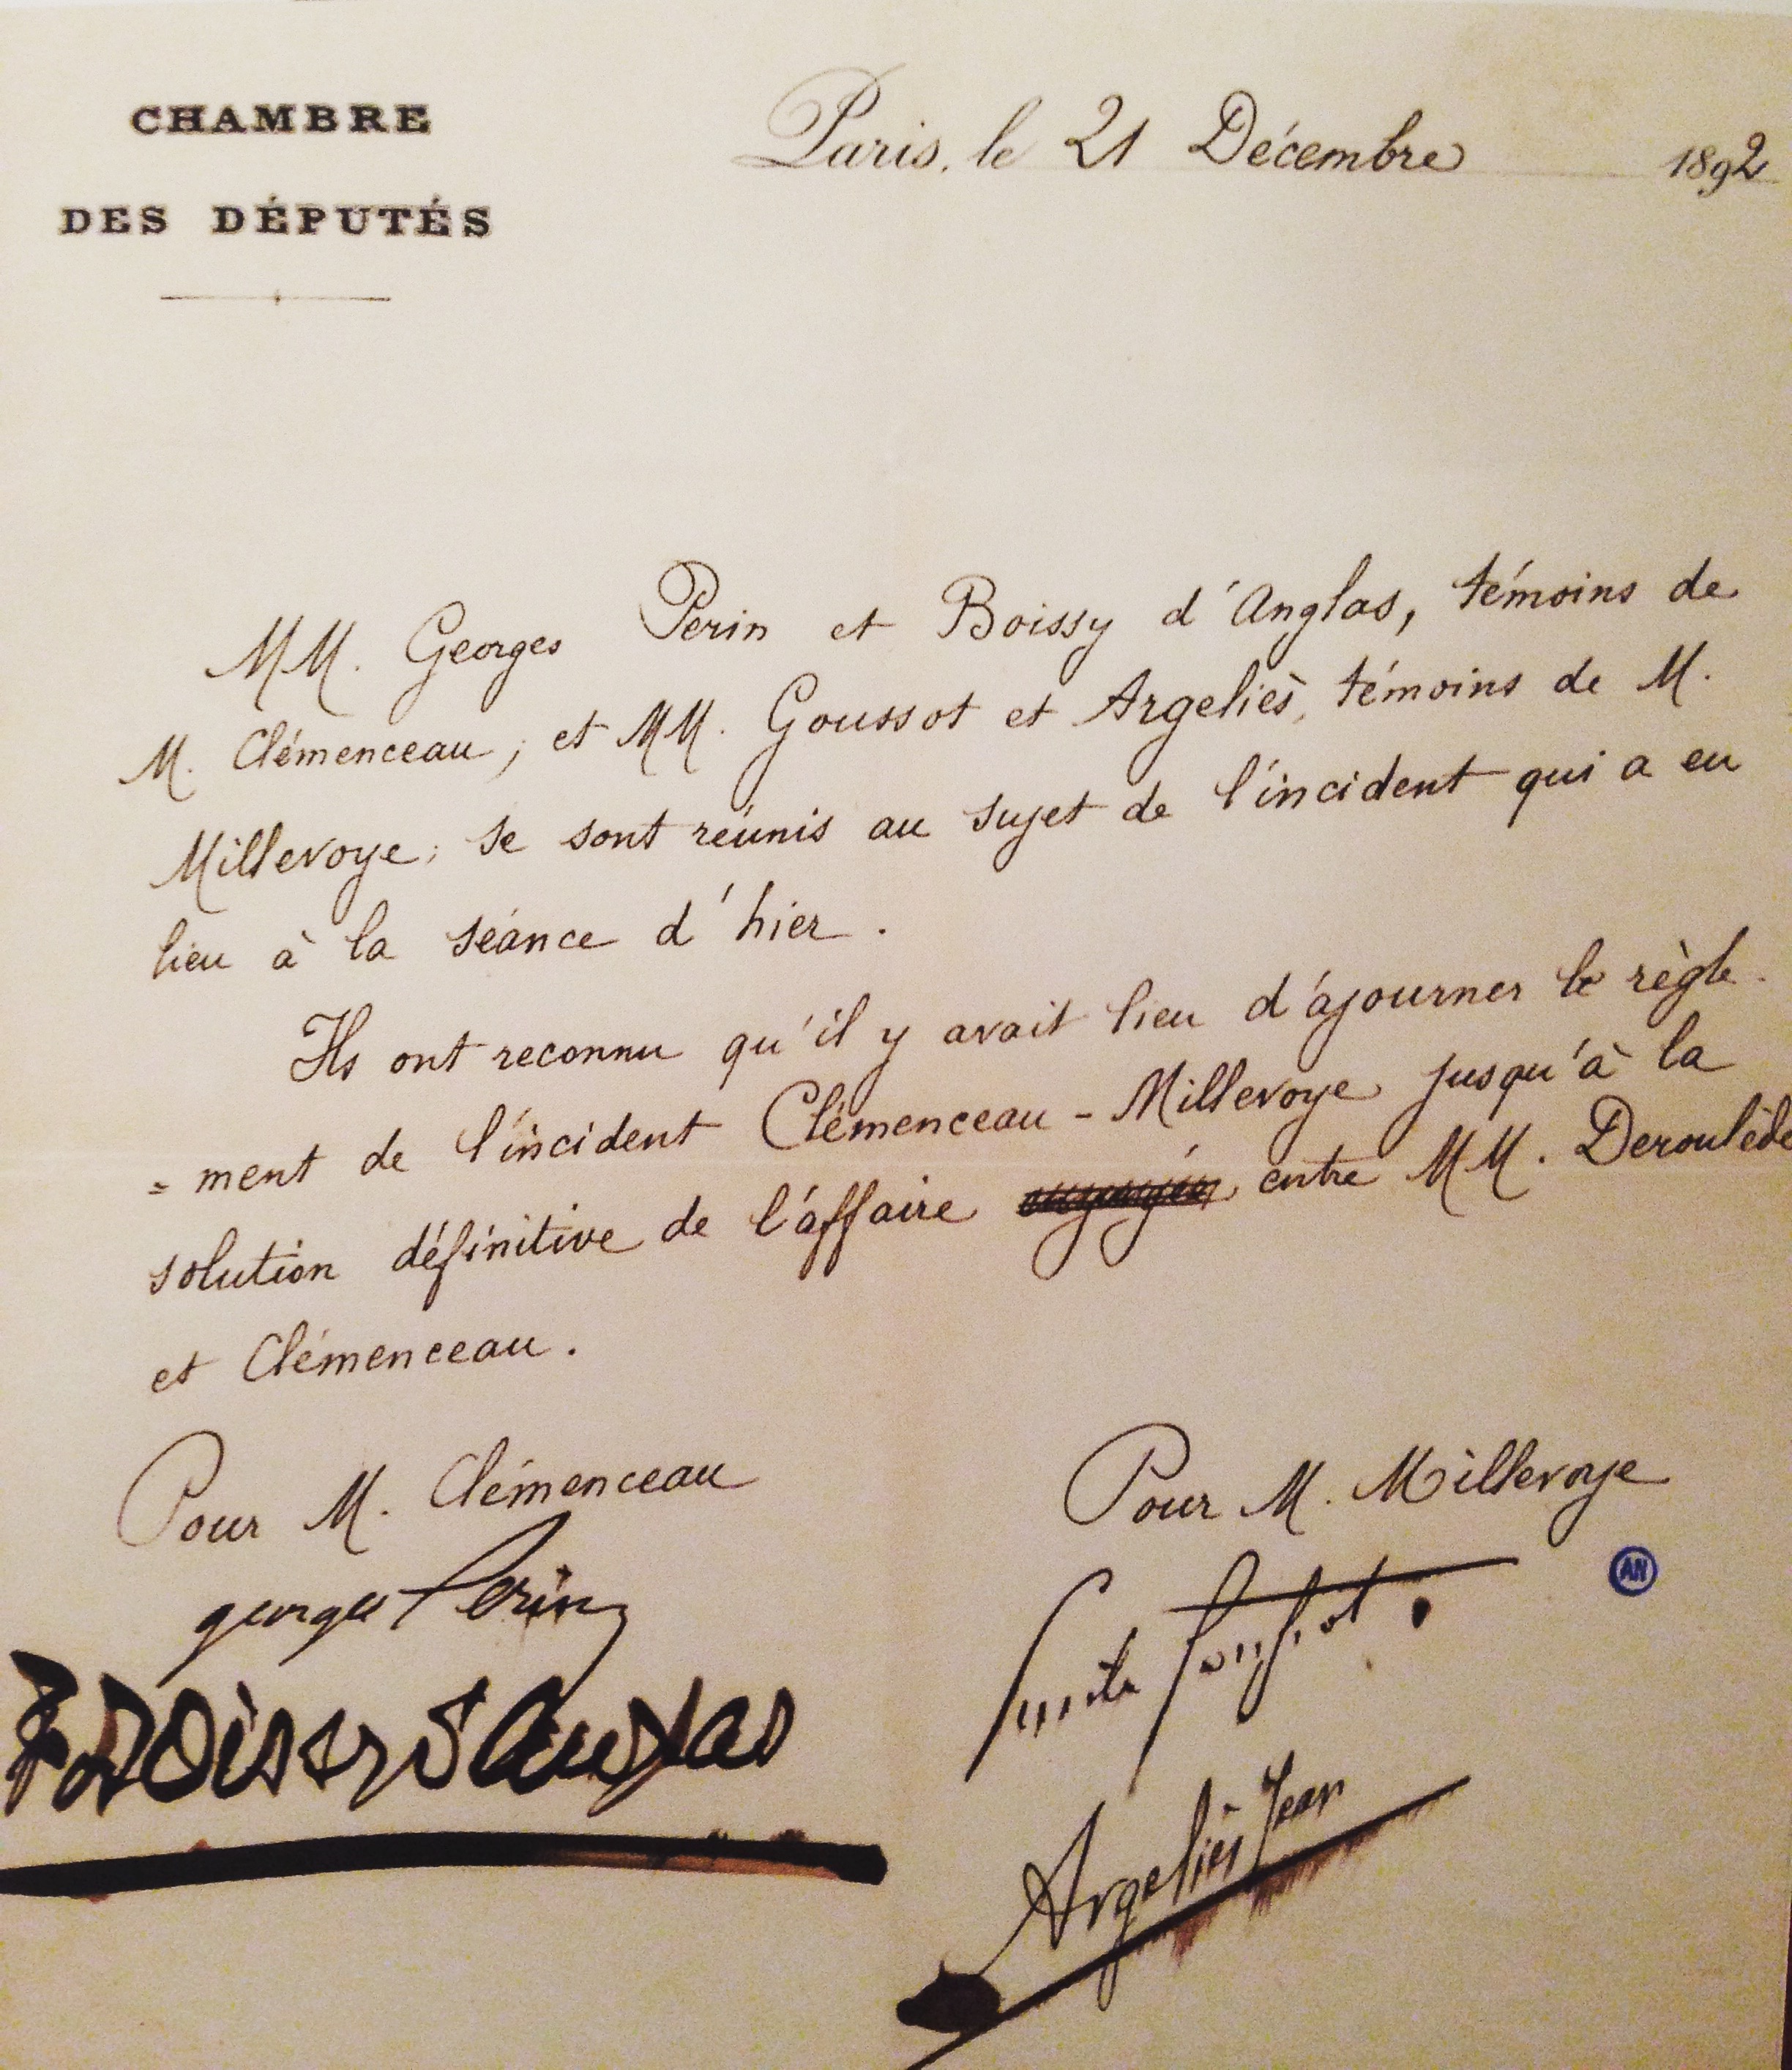 CHAMBRE
DES DÉPUTÉS
Paris, le 21 Décembre 1892
MM. Georges Perin et Boissy d'Anglas, témoins de
M. Clémenceau, et MM. Goussot et Argeliès, témoins de M.
Millevoye, se sont réunis au sujet de l'incident qui a eu
lieu à la séance d'hier.
Ils ont reconnu qu'il y avait lieu d'ajourner le règle-
=ment de l'incident Clémenceau-Millevoye jusqu'à la
solution définitive de l'affaire entre MM. Deroulède
et Clémenceau.
Pour M. Clémenceau
Pour M. Millevoye
georges Perin
AN
Boissy d'Anglas
Argeliès Jean